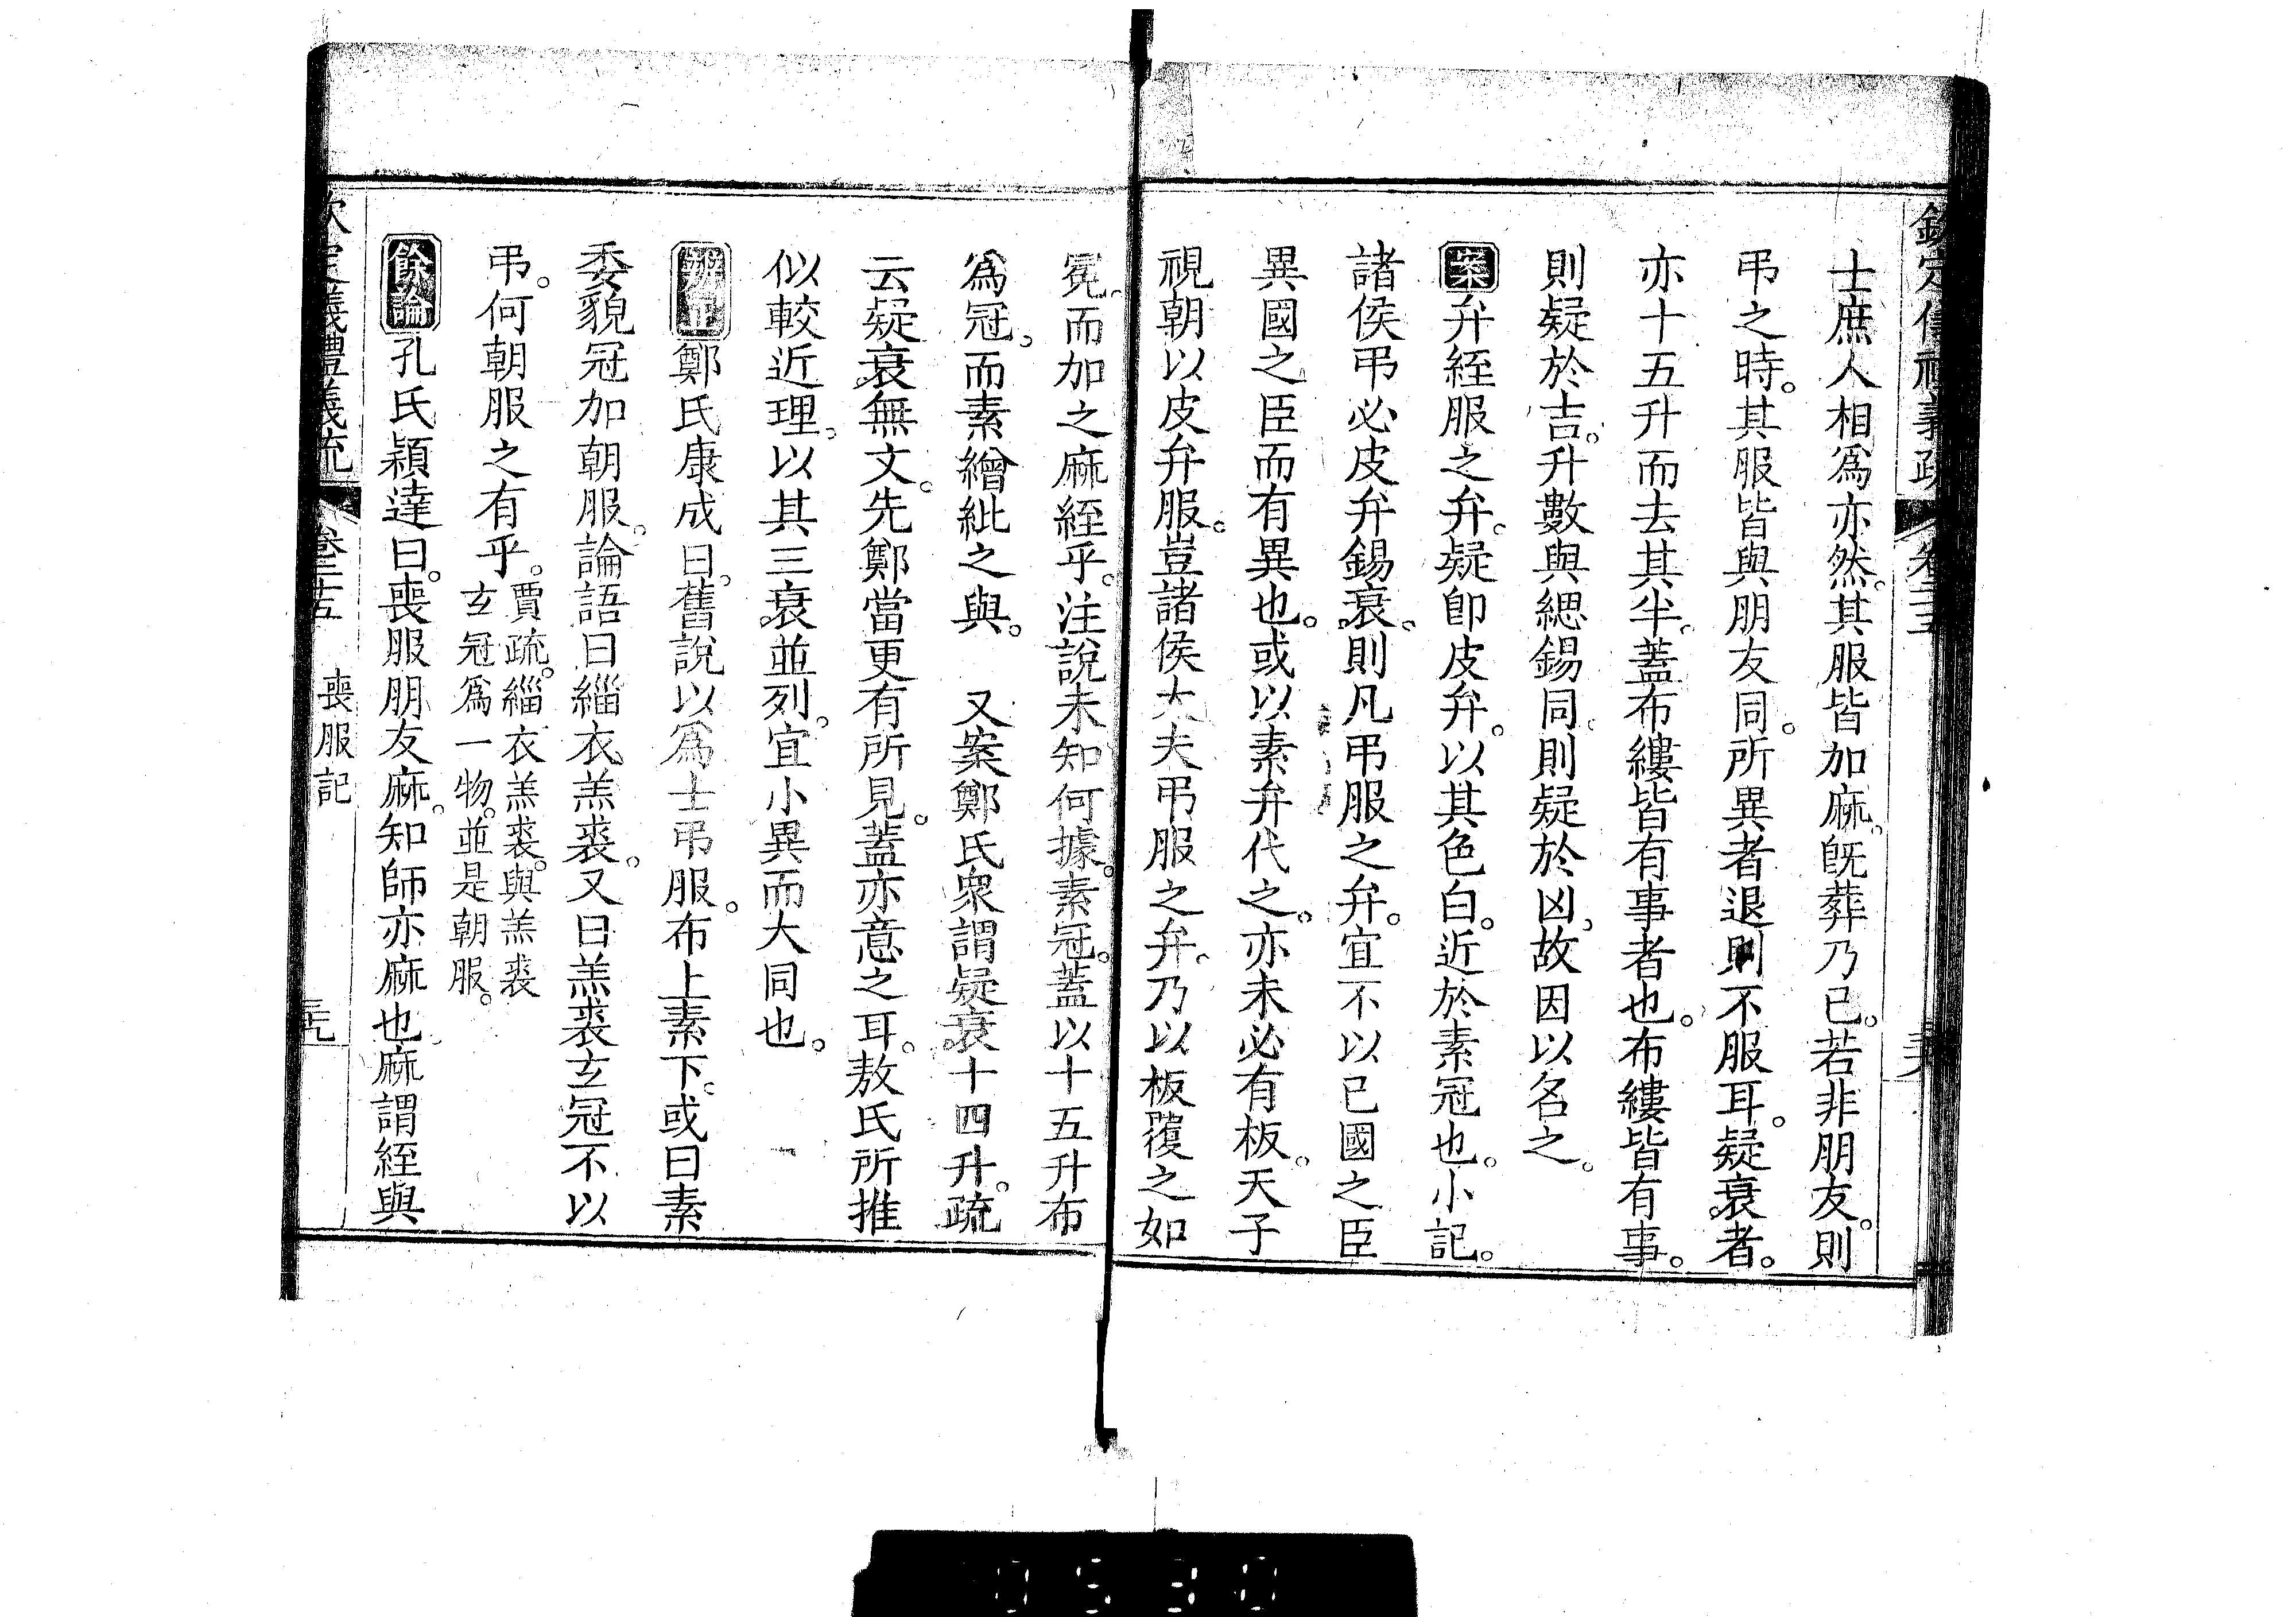 士庶人相爲亦然。其服皆加麻。旣葬乃已。若非朋友。則
弔之時。其服皆與朋友同。所異者退則不服耳。疑衰者。
亦十五升而去其半。蓋布縷皆有事者也。布縷皆有事。
則疑於吉。升數與緦錫同。則疑於凶。故因以名之。
案弁絰服之弁。疑卽皮弁。以其色白。近於素冠也。小記。
諸侯弔必皮弁錫衰。則凡弔服之弁。宜不以已國之臣
異國之臣而有異也。或以素弁代之。亦未必有板。天子
視朝以皮弁服。豈諸侯大夫弔服之弁。乃以板覆之如
冕。而加之麻絰乎。注說未知何據。素冠。蓋以十五升布
爲冠。而素繒紕之與。 又案鄭氏衆謂疑衰十四升。疏
云疑衰無文。先鄭當更有所見。蓋亦意之耳。敖氏所推
似較近理。以其三衰並列。宜小異而大同也。
辨正鄭氏康成曰。舊說以爲士弔服。布上素下。或曰素
委貌冠加朝服。論語曰緇衣羔裘。又曰羔裘玄冠不以
弔。何朝服之有乎。賈疏。緇衣羔裘。與羔裘
玄冠爲一物。並是朝服。
餘論孔氏穎達曰。喪服朋友麻。知師亦麻也。麻謂絰與
喪服記